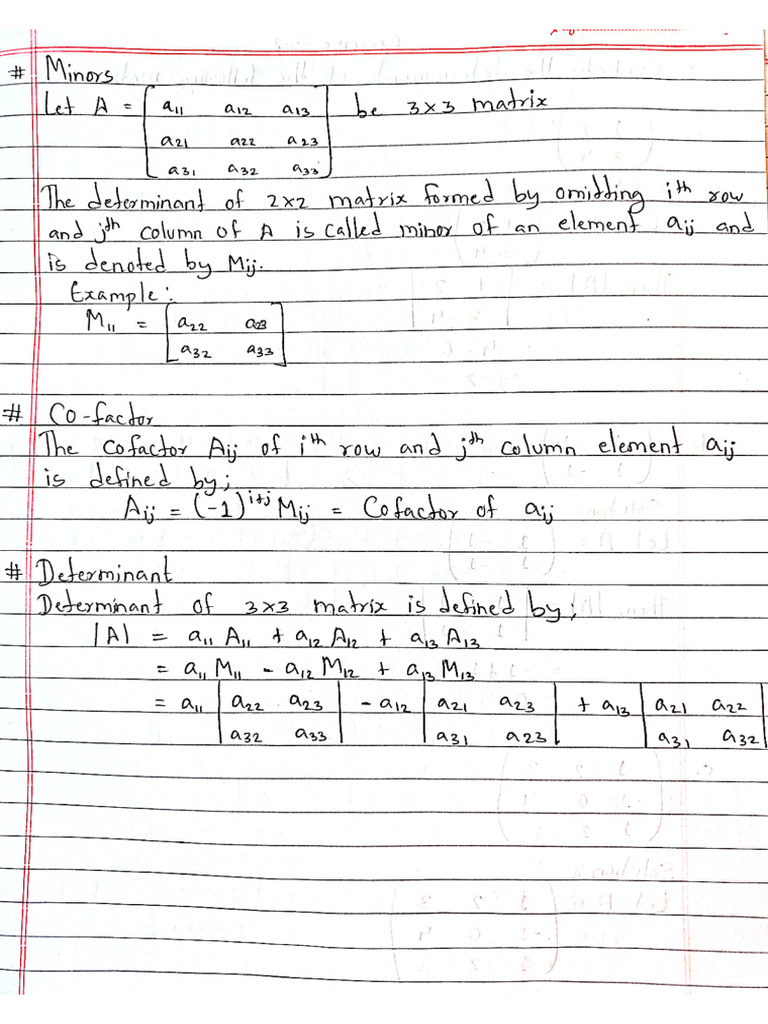 # Minors
Let A = [ a11 a12 a13 ] be 3×3 matrix
a21 a22 a23
a31 a32 a33
The determinant of 2×2 matrix formed by omitting ith row
and jth column of A is called minor of an element aij and
is denoted by Mij.
Example:
M11 = [ a22 a23 ]
a32 a33
# Co-factor
The cofactor Aij of ith row and jth column element aij
is defined by;
Aij = (-1)^i+j Mij = Cofactor of aij
# Determinant
Determinant of 3×3 matrix is defined by;
|A| = a11 A11 + a12 A12 + a13 A13
= a11 M11 - a12 M12 + a13 M13
= a11 | a22 a23 | - a12 | a21 a23 | + a13 | a21 a22 |
a32 a33 | a31 a23 | a31 a32